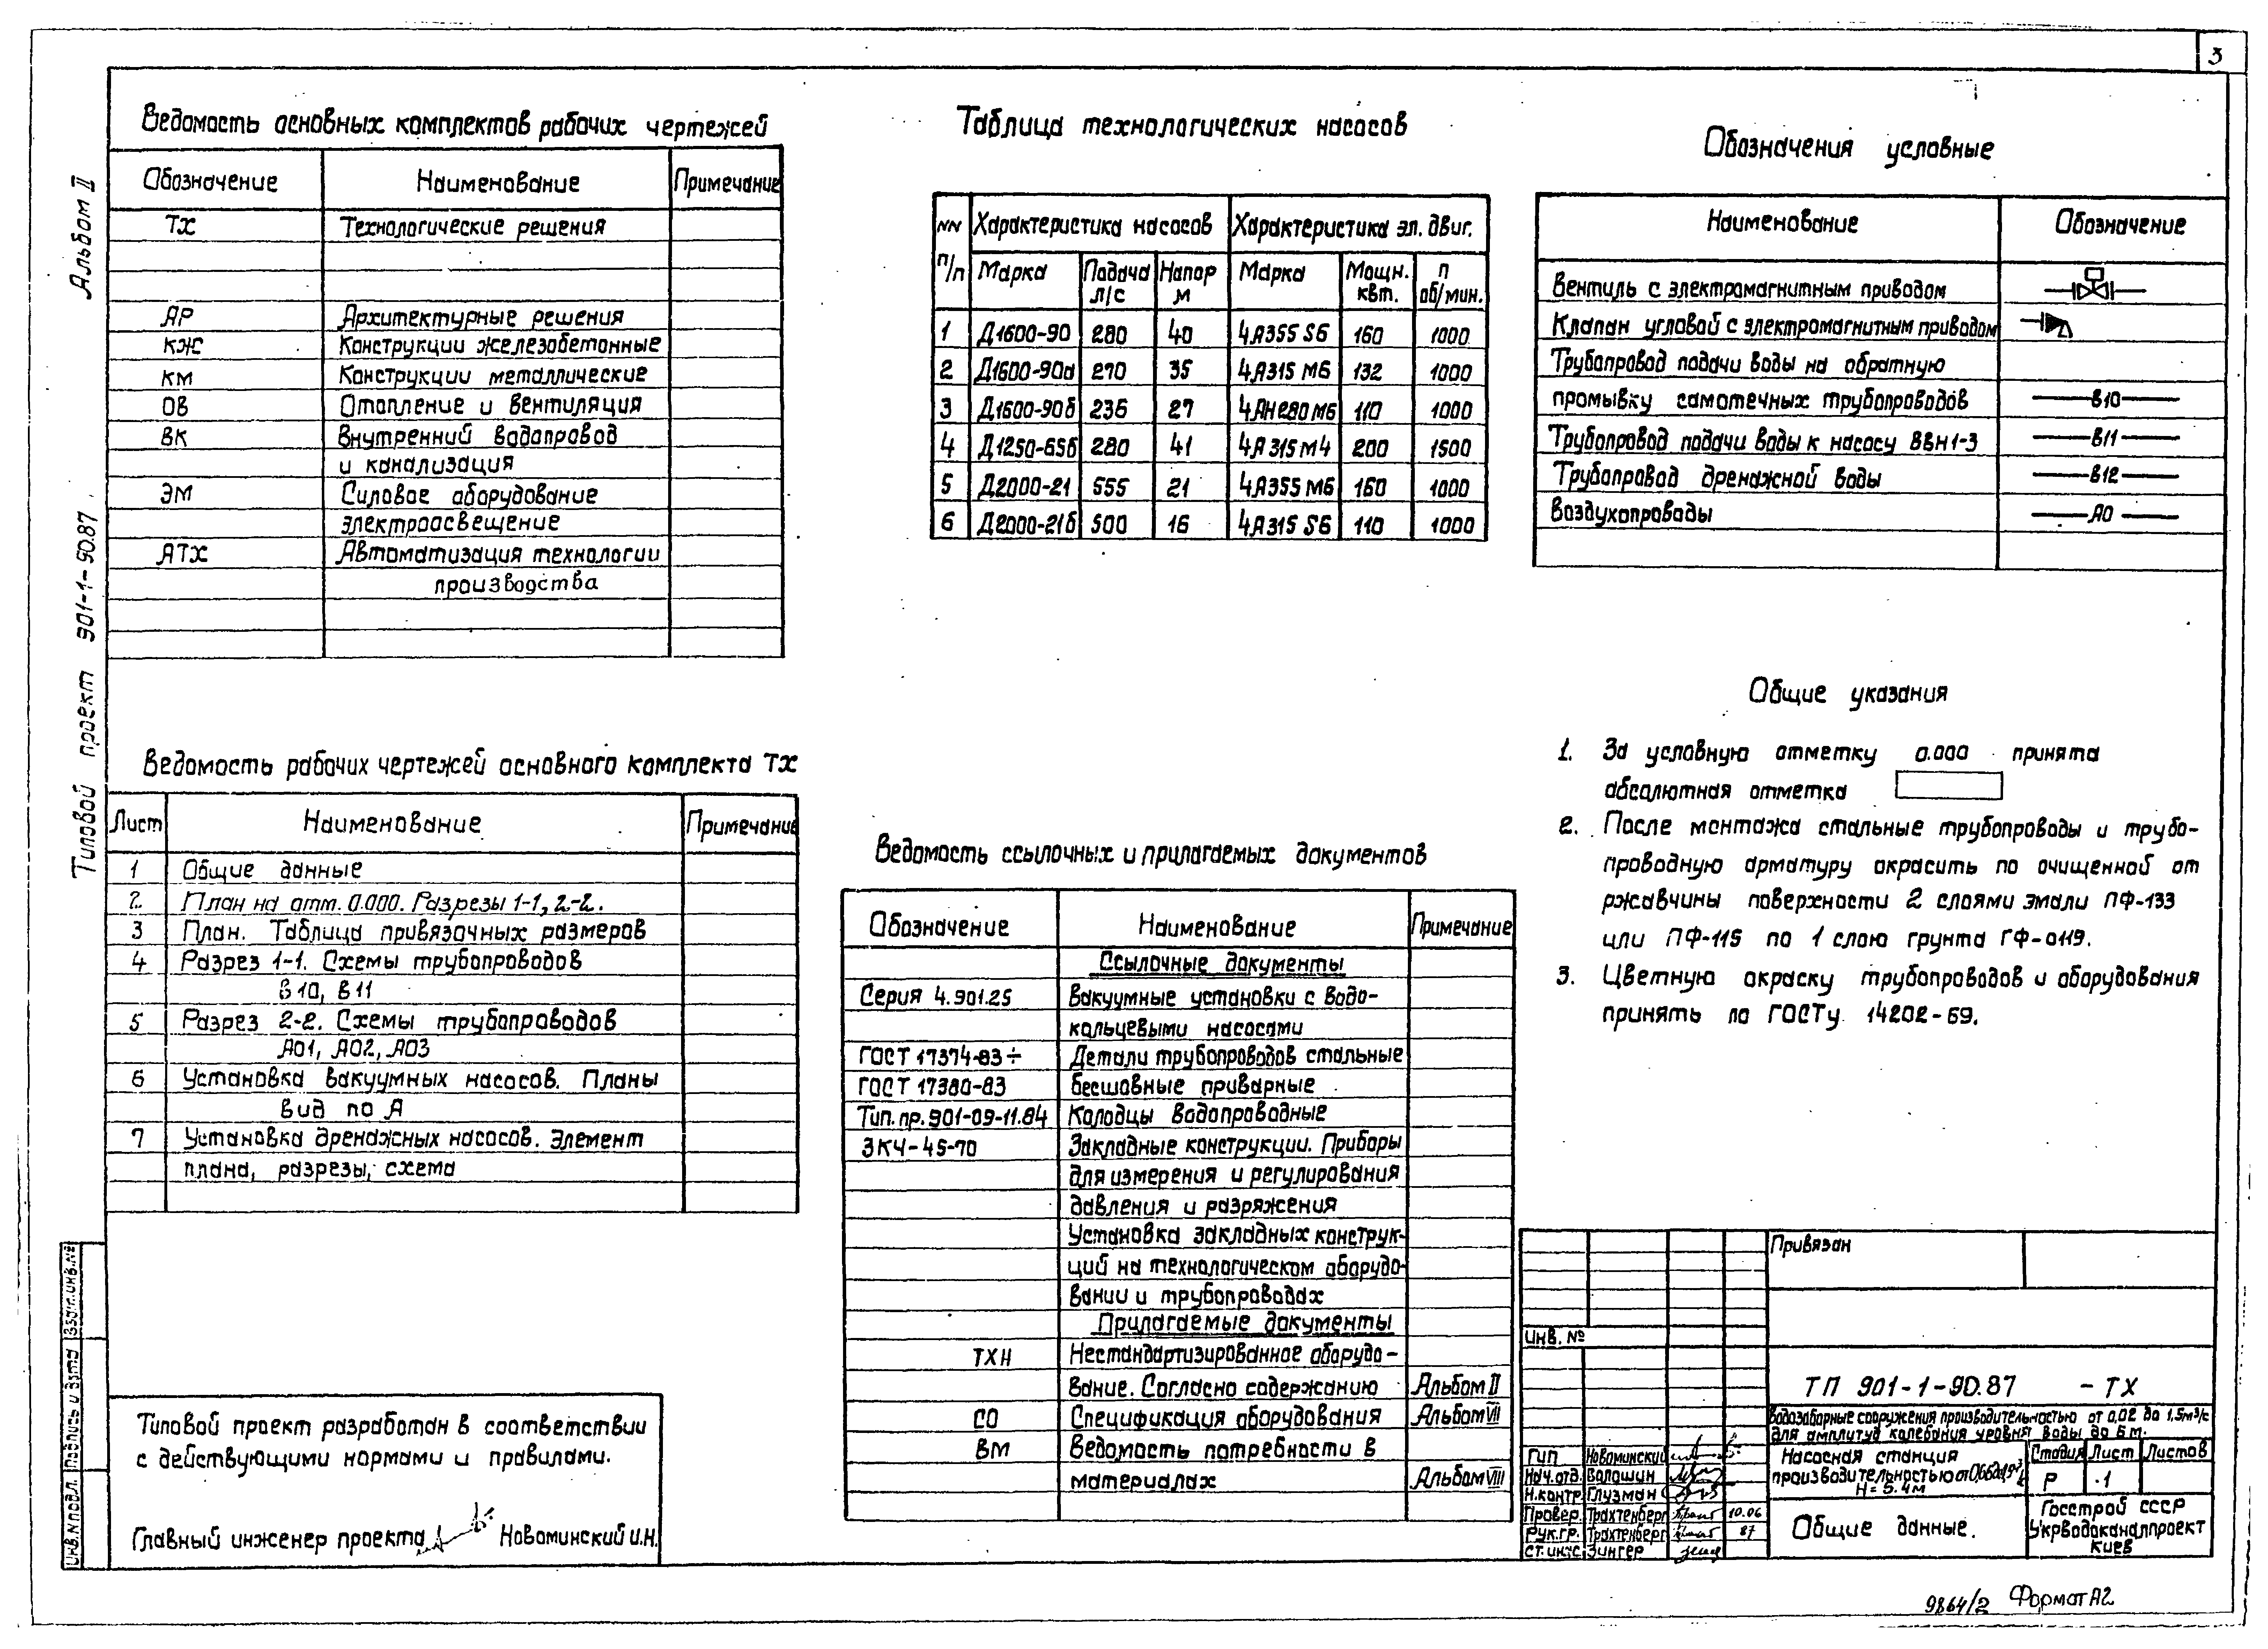 3
Альбом II
Типовой проект 901-1-90.87
Ведомость основных комплектов рабочих чертежей
Обозначение Наименование Примечание
ТХ Технологические решения
АР Архитектурные решения
КЖ Конструкции железобетонные
КМ Конструкции металлические
ОВ Отопление и вентиляция
ВК Внутренний водопровод
и канализация
ЭМ Силовое оборудование
электроосвещение
АТХ Автоматизация технологии
производства
Ведомость рабочих чертежей основного комплекта ТХ
Лист Наименование Примечание
1 Общие данные
2 План на отм. 0.000. Разрезы 1-1, 2-2.
3 План. Таблица привязочных размеров
4 Разрез 1-1. Схемы трубопроводов
В10, В11
5 Разрез 2-2. Схемы трубопроводов
А01, А02, А03
6 Установка вакуумных насосов. Планы
вид по А
7 Установка дренажных насосов. Элемент
плана, разрезы, схема
Типовой проект разработан в соответствии
с действующими нормами и правилами.
Главный инженер проекта Новоминский И.Н.
Таблица технологических насосов
NN п/п Характеристика насосов Характеристика эл. двиг.
Марка Подача л/с Напор м Марка Мощн. квт. n об/мин.
1 Д1600-90 280 40 4А355 S6 160 1000
2 Д1600-90а 270 35 4А315 М6 132 1000
3 Д1600-90б 236 27 4АН280 М6 110 1000
4 Д1250-65б 280 41 4А315 М4 200 1500
5 Д2000-21 555 21 4А355 М6 160 1000
6 Д2000-21б 500 16 4А315 S6 110 1000
Ведомость ссылочных и прилагаемых документов
Обозначение Наименование Примечание
Ссылочные документы
Серия 4.901.25 Вакуумные установки с водо-
кольцевыми насосами
ГОСТ 17374-83÷ Детали трубопроводов стальные
ГОСТ 17380-83 бесшовные приварные
Тип.пр.901-09-11.84 Колодцы водопроводные
ЗКЧ-45-70 Закладные конструкции. Приборы
для измерения и регулирования
давления и разряжения
Установка закладных конструк-
ций на технологическом оборудо-
вании и трубопроводах
Прилагаемые документы
ТХН Нестандартизированное оборудо-
вание. Согласно содержанию Альбом II
СО Спецификация оборудования Альбом VII
ВМ Ведомость потребности в
материалах Альбом VIII
Обозначения условные
Наименование Обозначение
Вентиль с электромагнитным приводом
Клапан угловой с электромагнитным приводом
Трубопровод подачи воды на обратную
промывку самотечных трубопроводов В10
Трубопровод подачи воды к насосу ВВН1-3 В11
Трубопровод дренажной воды В12
Воздухопроводы А0
Общие указания
1. За условную отметку 0.000 принята
абсолютная отметка
2. После монтажа стальные трубопроводы и трубо-
проводную арматуру окрасить по очищенной от
ржавчины поверхности 2 слоями эмали ПФ-133
или ПФ-115 по 1 слою грунта ГФ-0119.
3. Цветную окраску трубопроводов и оборудования
принять по ГОСТу 14202-69.
Привязан
Инв. №
ТП 901-1-90.87 -ТХ
Водозаборные сооружения производительностью от 0,02 до 1,5м³/с
для амплитуд колебания уровня воды до 6 м.
Гип Новоминский
Нач.отд. Волошин
Н.контр. Глузман
Провер. Трахтенберг 10.06
Рук.гр. Трахтенберг 87
Ст.инж. Зингер
Насосная станция
производительностью от
H=5.4м
Стадия Лист Листов
Р 1
Общие данные.
Госстрой СССР
Укрводоканалпроект
Киев
Инв.N подл. Подпись и дата Взам.инв.№
9864/2 Формат А2